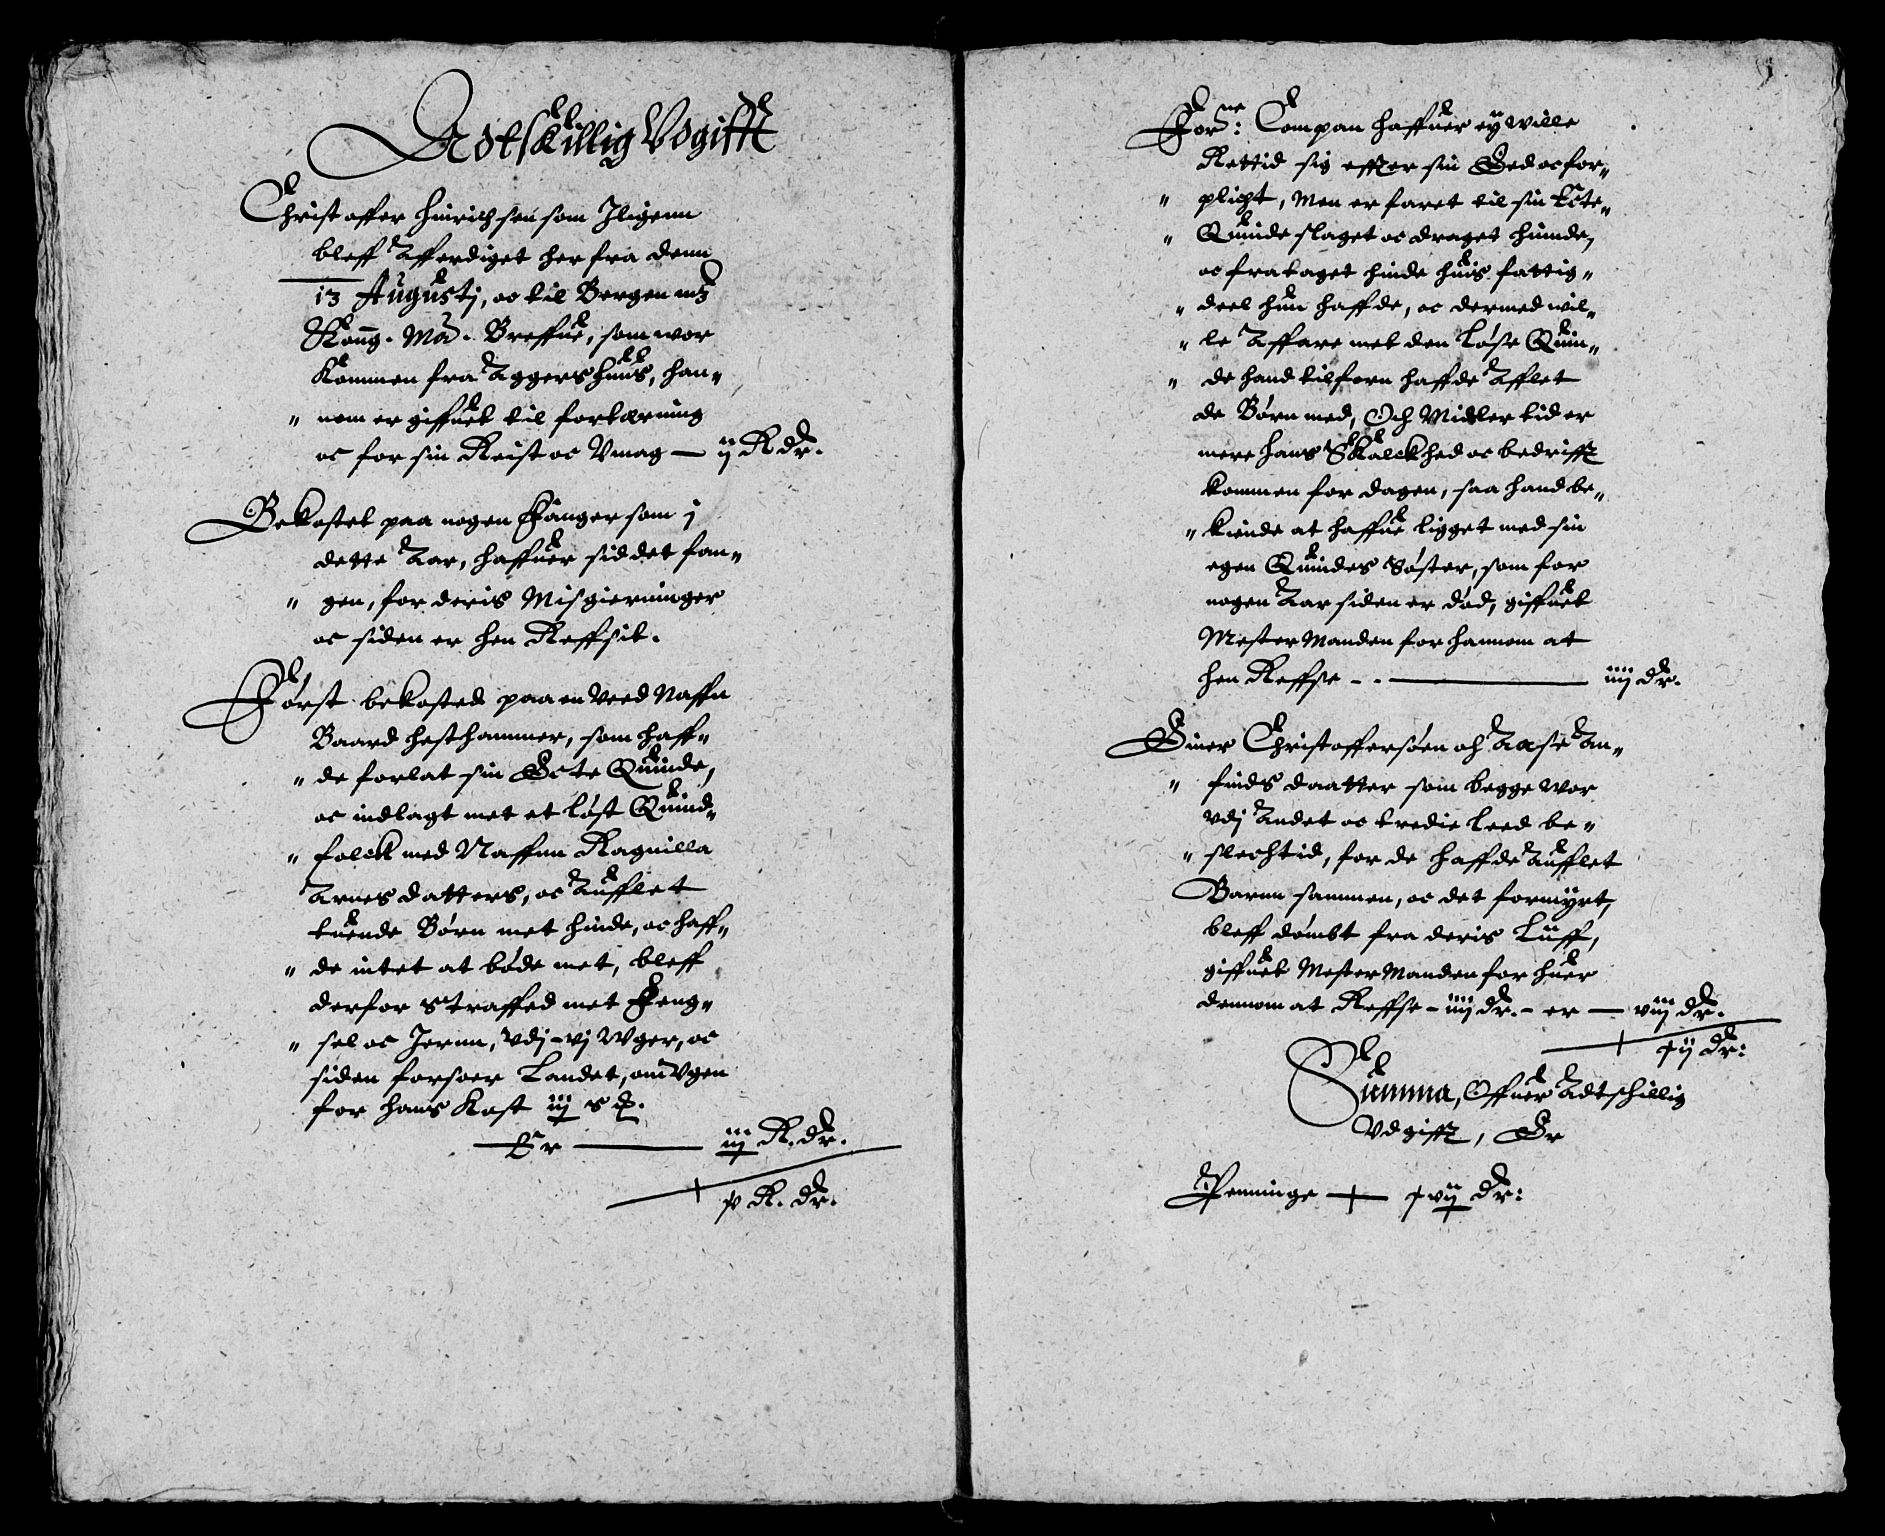 Adtskillig Vdgifft
Christoffer Hinrichsen som Iligenn
bleff Afferdiget her fra denn
13 Augustj, oc til Bergen mz
Kong. Ma. Breffue, som wor
kommen fra Aggershuus, han„
„ nom er giffuet til fortæring
oc for sin Reist oc Vmag — ij Rdr.
Bekostet paa nogen Fanger som j
dette Aar, haffuer siddet fan„
„ gen, for deris Misgierninger
oc siden er hen Reffsit.
Først bekosted paa en veed Naffn
Baard Hesthammer, som haff„
„ de forlat sin Ecte Quinde,
oc indlagt met et løst Quind„
„ folck med Naffnn Ragnilla
Arnesdatters, oc Aufflet
tuende Børn met hinde, oc haff„
„ de intet at bøde met, bleff
derfor straffed met Feng„
„ sel oc Jernn, vdj – vj Wger, oc
siden forsoer Landet, om Vgen
for hans Kost iij s d.
Er — iij R. dr.
v R. dr.
Forne: Compan haffuer ey wille
Rettid sig effter sin Eed oc for„
„ plicht, Men er faret til sin Ecte„
„ Quinde slaget oc draget hinde,
oc frataget hinde huis fattig„
„ deel hun haffde, oc dermed wil„
„ le Affare met den Løse Quin„
„ de hand tilforn haffde Afflet
de Børn med, Och Midler tid er
mere hans Skalckhed oc bedrifft
kommen for dagen, saa hand be„
„ kiende at haffue ligget med sin
egen Quindes Søster, som for
nogen Aar siden er død, giffuet
Mester Manden for hannom at
hen Reffse – . – — iiij dr.
Einer Christoffersøen oh Aase An„
„ finds daatter som begge wor
vdj Andet oc tredie Leed be„
„ slechtid, for de haffde Aufflet
Barnn sammen, oc det formyrt,
bleff dømbt fra deris Liff,
giffuet Mester Manden for huer
dennom at Reffse – iiij dr. – er — viij dr.
xij dr:
Summa, Offuer Adtschillig
Vdgifft, Er
Penninge — xvij dr: